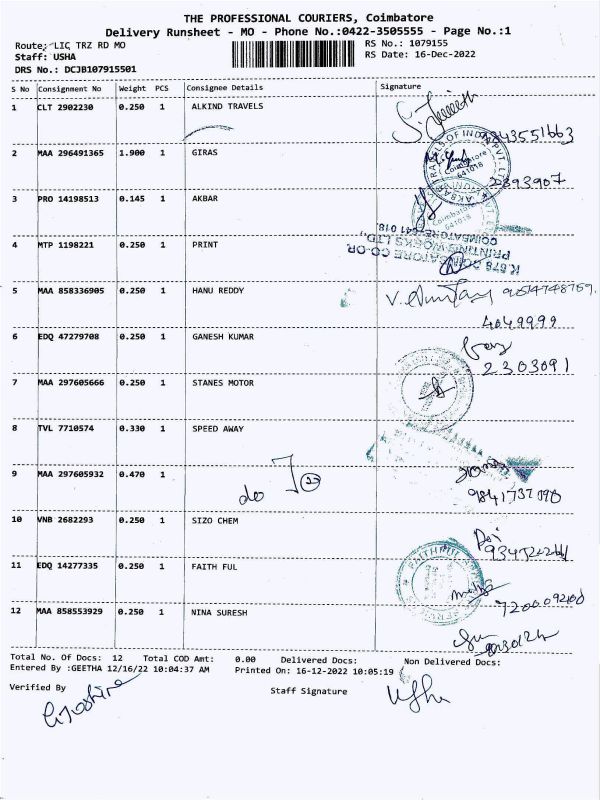 THE PROFESSIONAL COURIERS, Coimbatore
Delivery Runsheet - MO - Phone No.:0422-3505555 - Page No.:1
Route: LIC TRZ RD MO
RS No.: 1079155
Staff: USHA
RS Date: 16-Dec-2022
DRS No.: DCJB107915501
S No Consignment No Weight PCS Consignee Details Signature
1 CLT 2902230 0.250 1 ALKIND TRAVELS
2 MAA 296491365 1.900 1 GIRAS
2393907
3 PRO 14198513 0.145 1 AKBAR
4 MTP 1198221 0.250 1 PRINT
5 MAA 858336905 0.250 1 HANU REDDY
4049999
6 EDQ 47279708 0.250 1 GANESH KUMAR
2303091
7 MAA 297605666 0.250 1 STANES MOTOR
8 TVL 7710574 0.330 1 SPEED AWAY
9 MAA 297605932 0.470 1 do
10 VNB 2682293 0.250 1 SIZO CHEM
11 EDQ 14277335 0.250 1 FAITH FUL
12 MAA 858553929 0.250 1 NINA SURESH
Total No. Of Docs: 12 Total COD Amt: 0.00 Delivered Docs: Non Delivered Docs:
Entered By :GEETHA 12/16/22 10:04:37 AM Printed On: 16-12-2022 10:05:19
Verified By Staff Signature
Usha